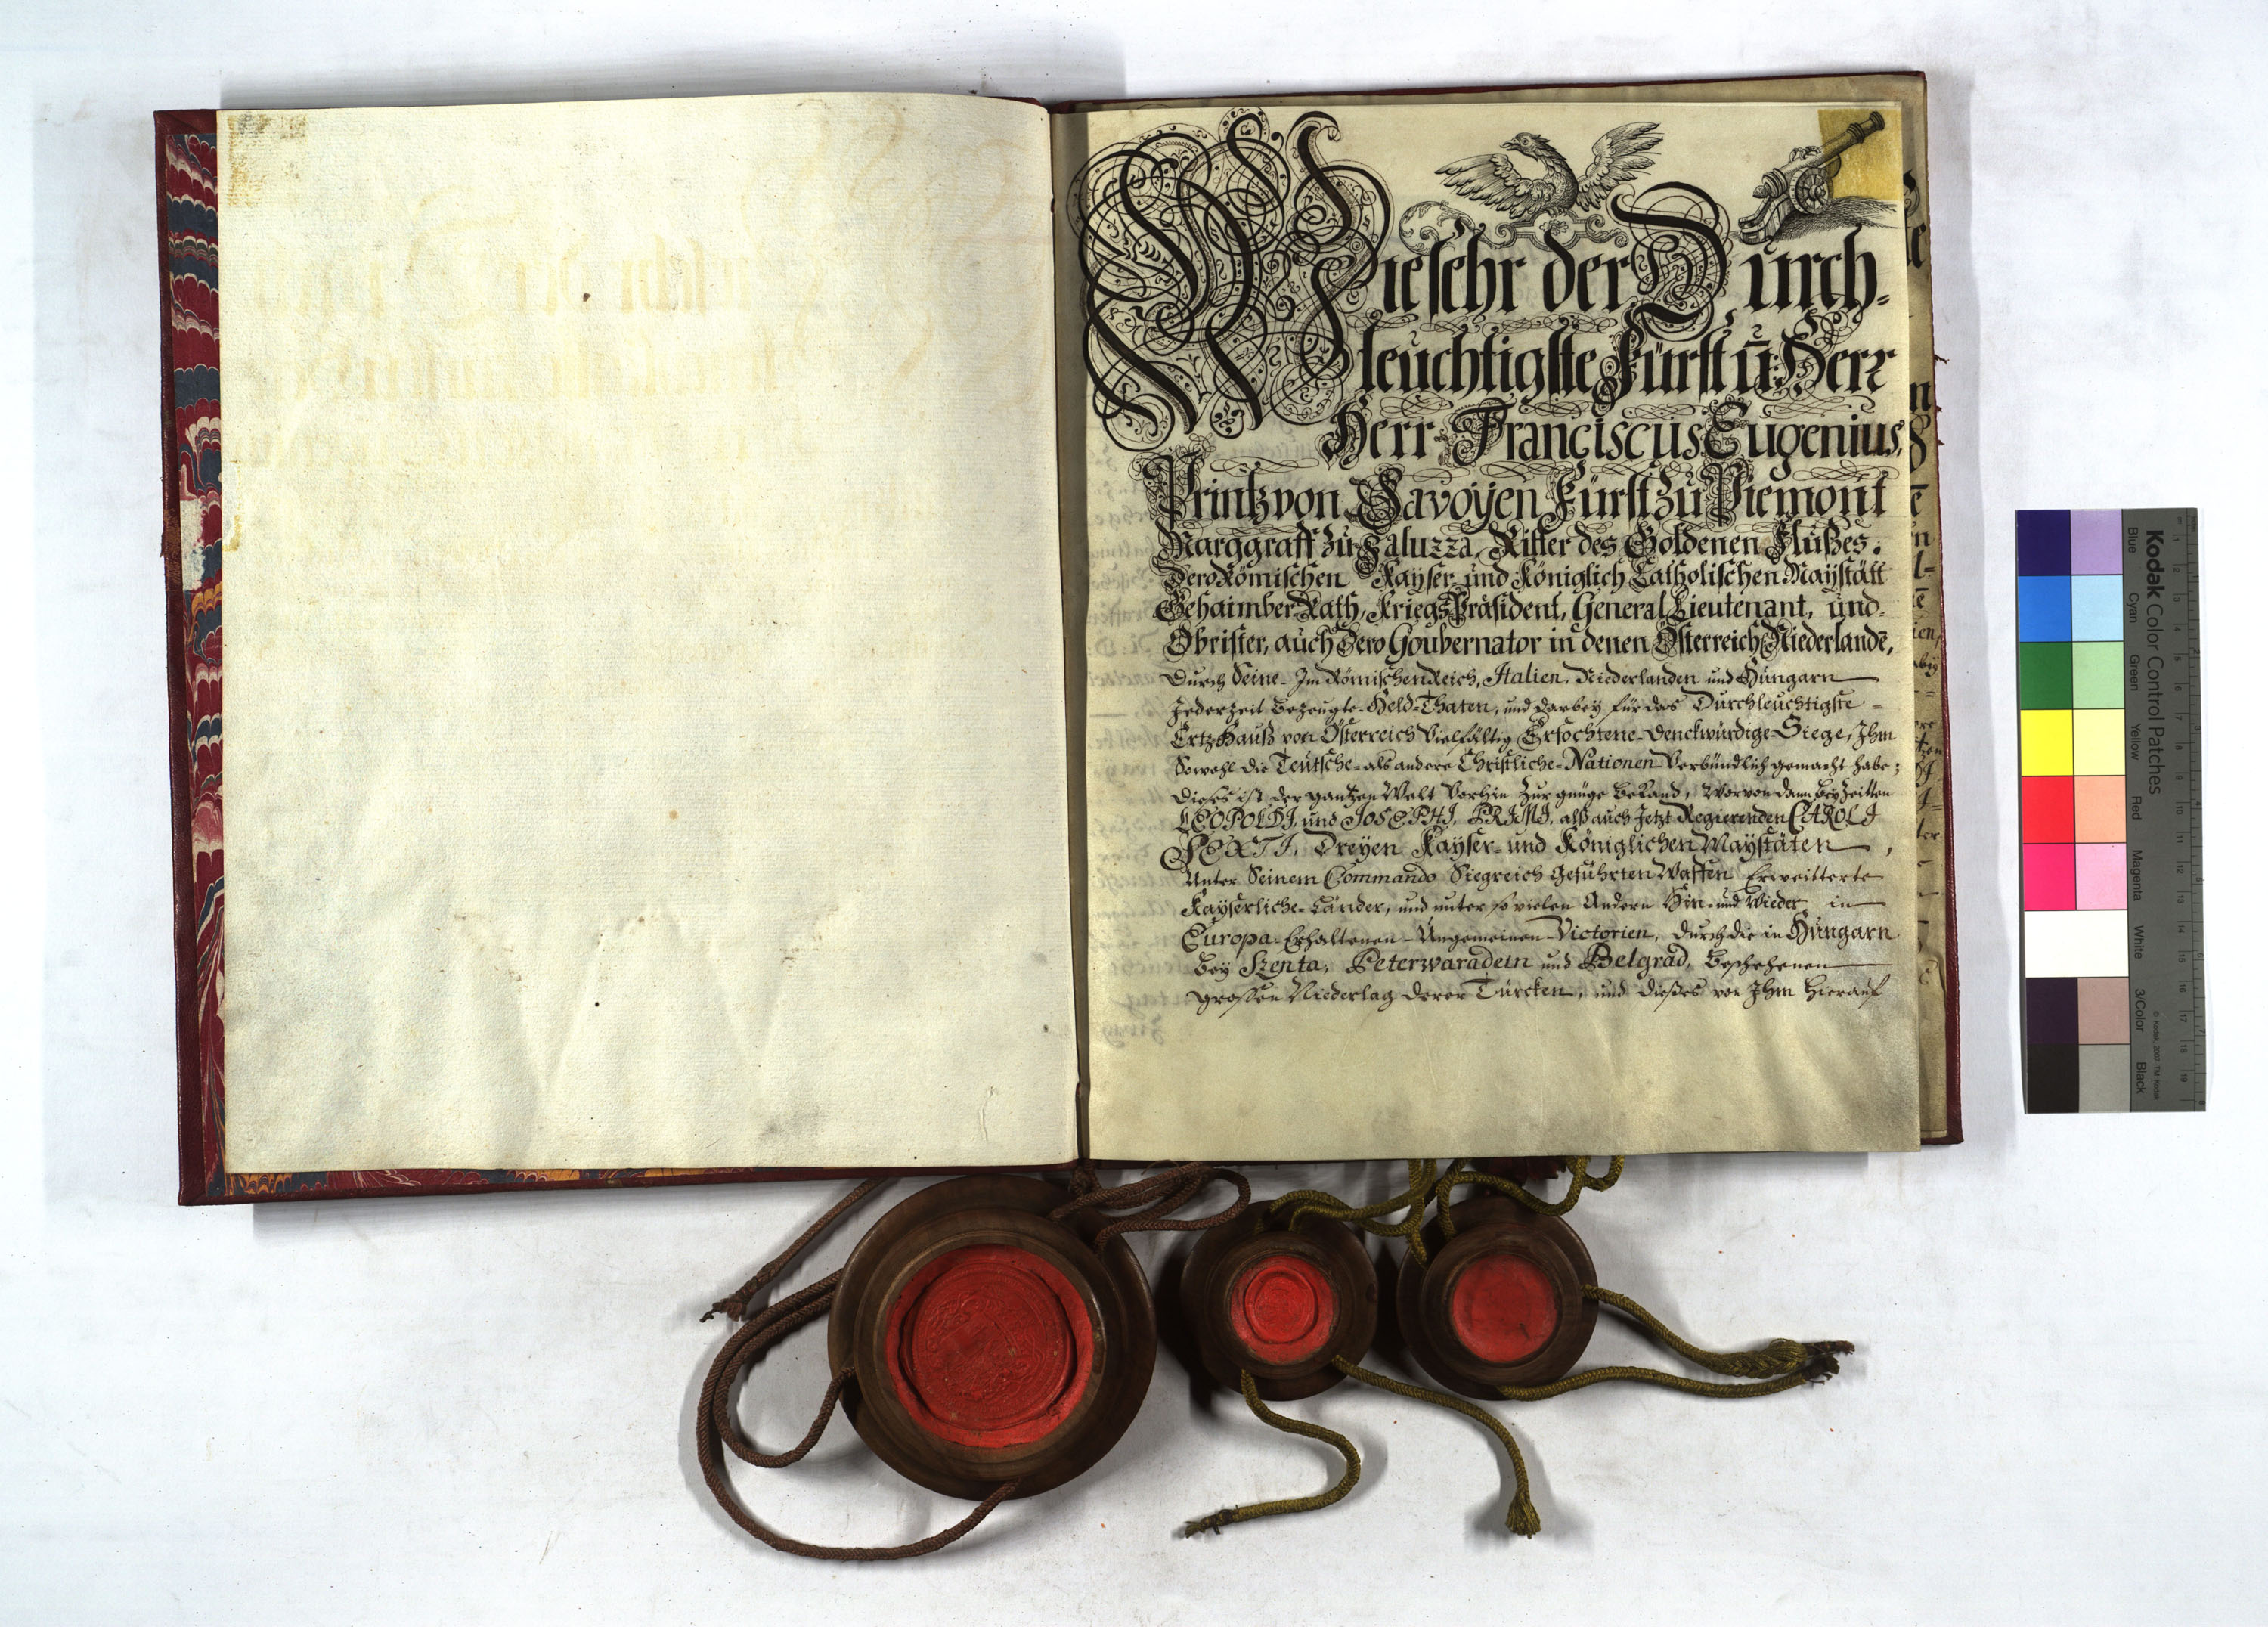 Wie sehr der Durch-
leuchtigste Fürst ū: Herr
Herr Franciscus Eugenius,
Printz von Savoyen Fürst zu Piemont
Marggraff zu Saluzza, Ritter des Goldenen Flußes.
Dero Römischen Kayser- und Königlich Catholischen Maystätt
Gehaimber Rath, Kriegs Präsident, General Lieutenant, und
Obrister, auch Dero Goubernator in denen Österreich Niederlandē,
Durch Seine Im Römischen Reich, Italien, Niederlanden und Hungarn
Jederzeit Bezeugte Held-Thaten, und darbey für das Durchleuchtigste
Ertz-Hauß von Österreich Vielfältig Erfochtene Denckwürdige Siege, Ihm
Sowohl die Teutsche- als andere Christliche-Nationen Verbündlich gemacht habe;
Dieses ist der gantzen Welt Vorhin zur gnüge bekand, Worvon dann bey zeitten
LEOPOLDI, und JOSEPHI, PRIMI, alß auch Jetzt Regierenden CAROLI
SEXTI, Dreyen Kayser- und Königlichen Maystäten,
Unter Seinem Commando Siegreich geführten Waffen Erweitterte
Kayserliche-Länder, und unter so vielen Andern Hin- und Wieder in
Europa Erhaltenen Ungemeinen Victorien, durch die in Hungarn
bey Szenta, Peterwaradein und Belgrad, beschehenen
grossen Niederlag derer Türcken, und dieses von Ihm hierauf
Kodak Color Control Patches
Blue Cyan Green Yellow Red Magenta White 3/Color Black